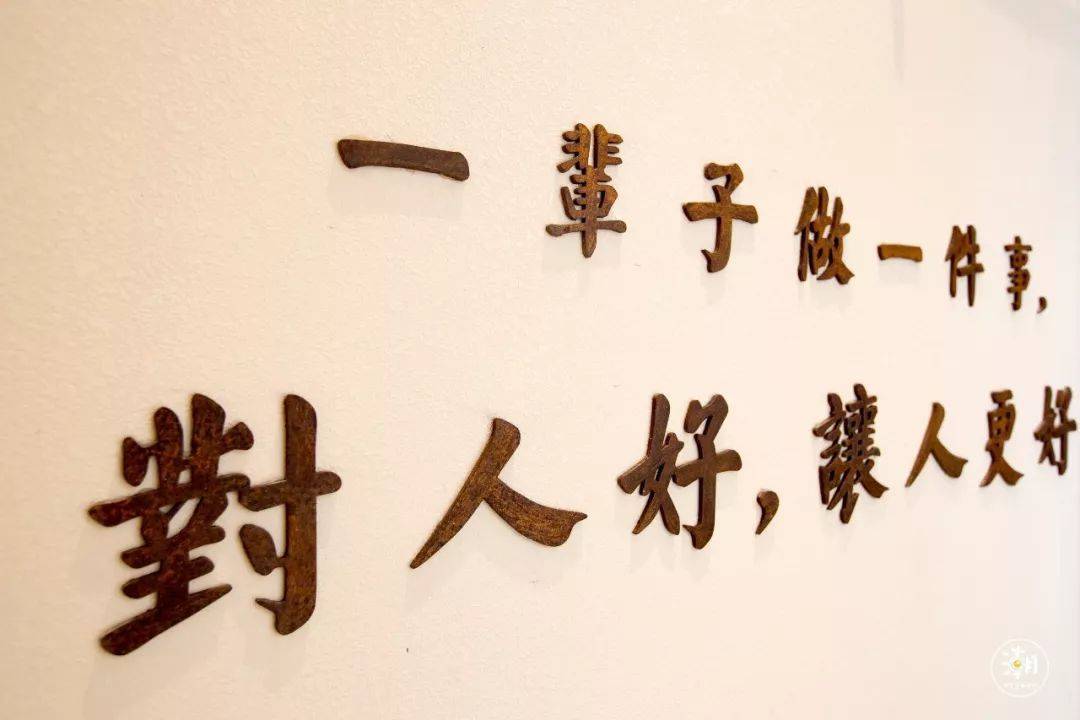 一輩子做一件事,
對人好,讓人更好